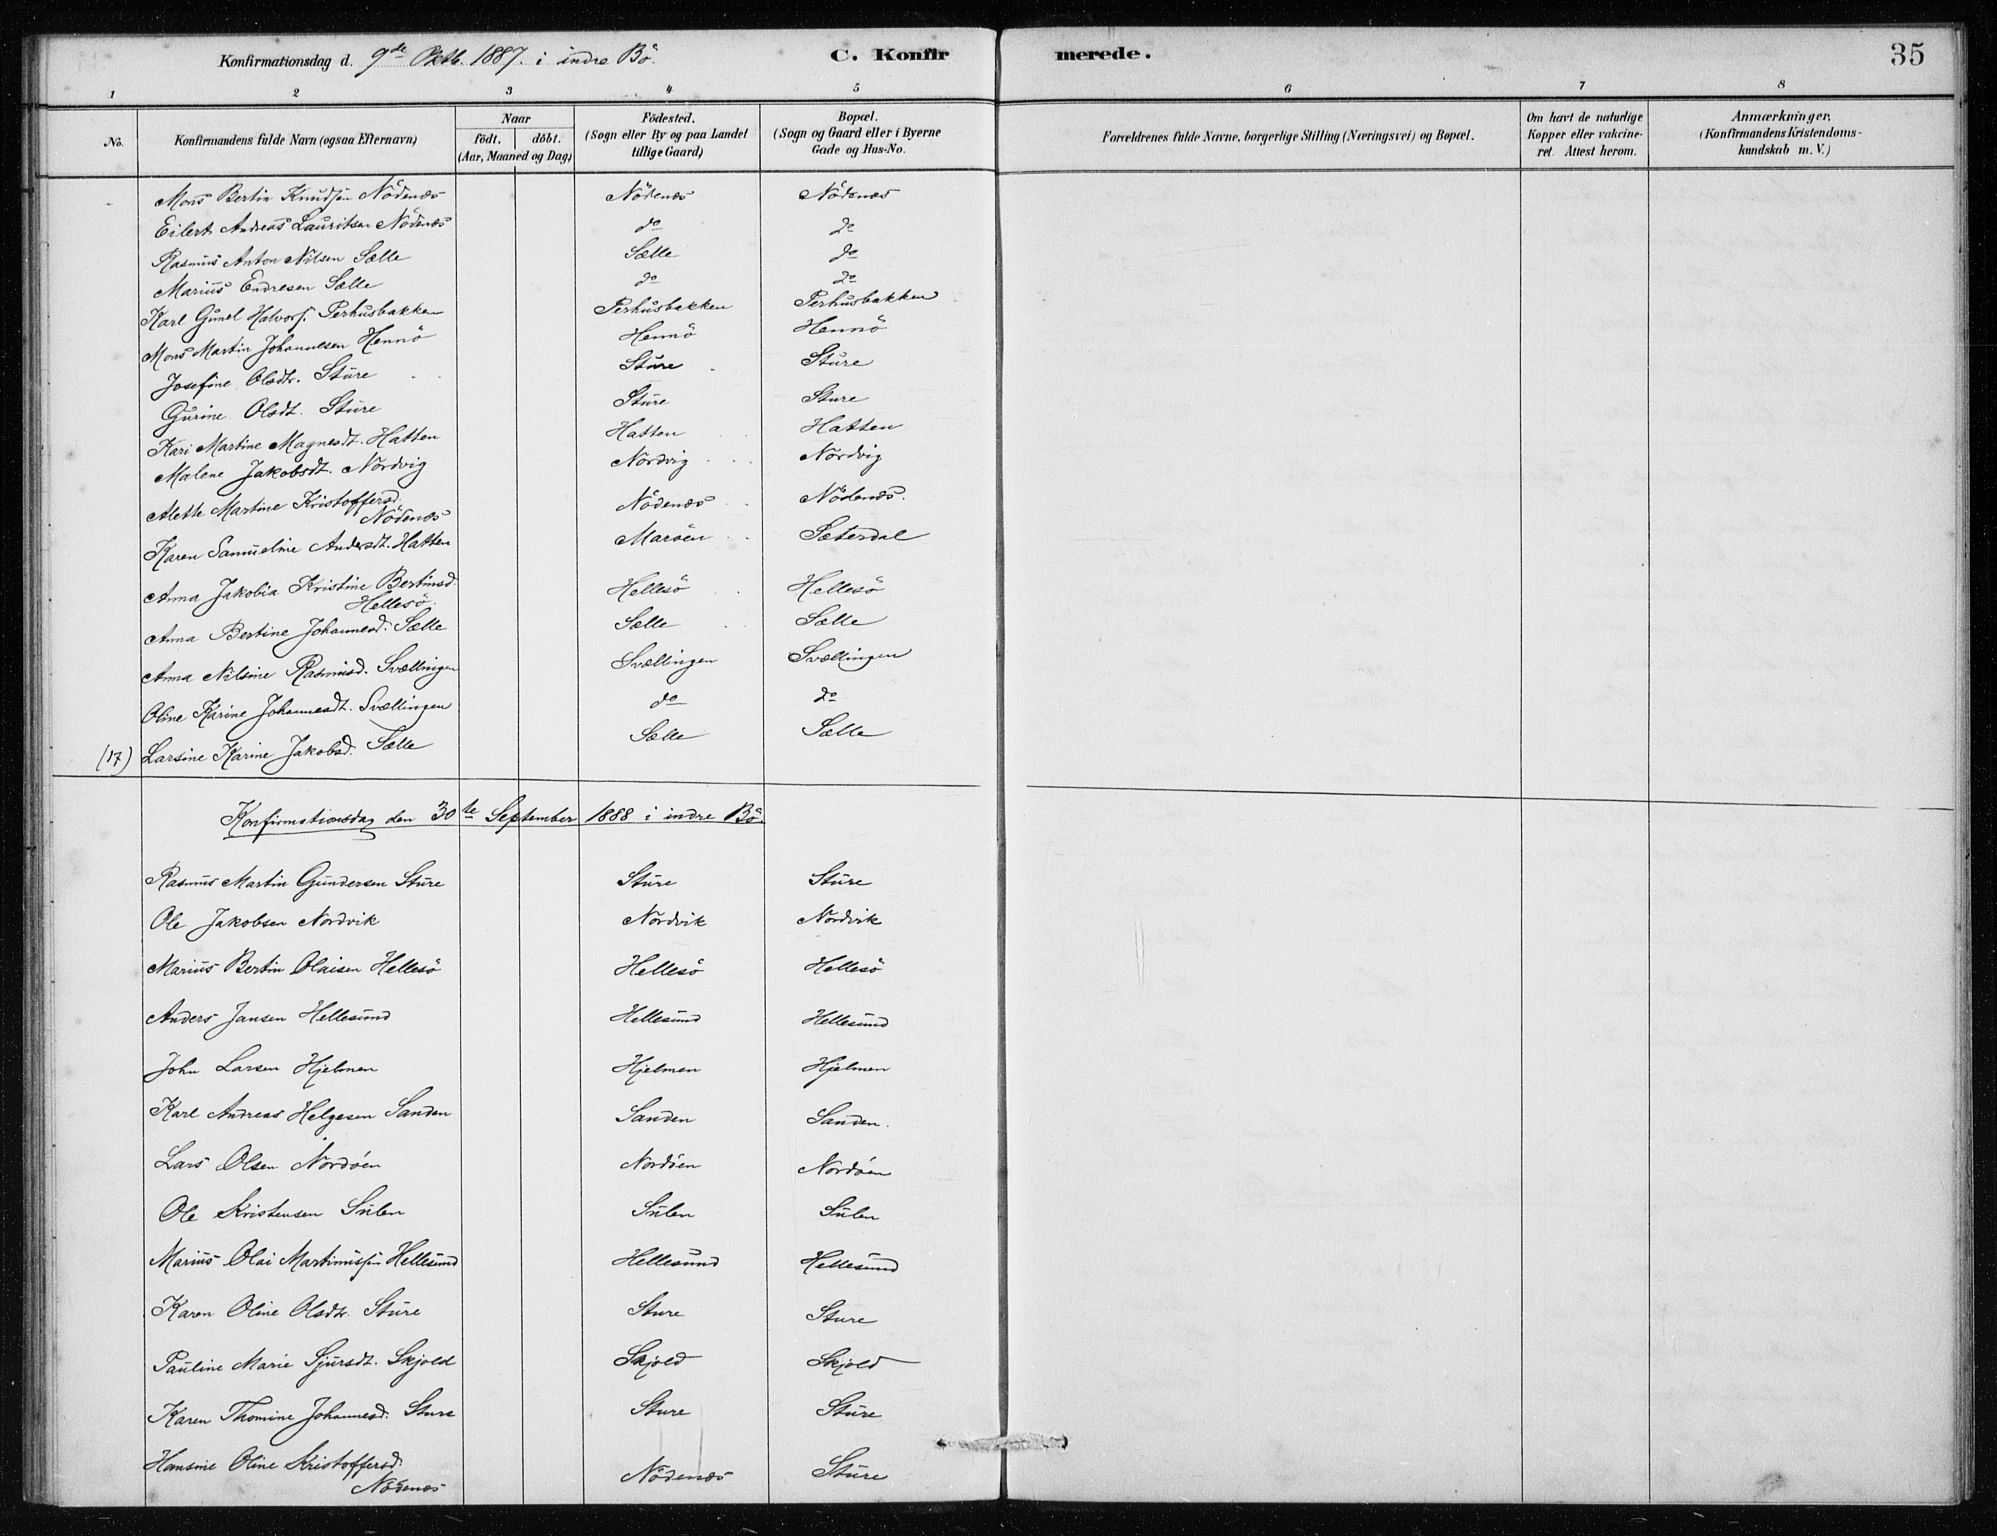 Konfirmationsdag d. 9de Oktb. 1887. i indre Bö. C. Konfir merede. 35
1 2 3 4 5 6 7 8
No. Konfirmandens fulde Navn (ogsaa Efternavn) Naar födt. döbt. (Aar, Maaned og Dag) Födested. (Sogn eller By og paa Landet tillige Gaard) Bopæl. (Sogn og Gaard eller i Byerne Gade og Hus-No. Forældrenes fulde Navne, borgerlige Stilling (Næringsvei) og Bopæl. Om havt de naturlige Kopper eller vakcineret. Attest herom. Anmærkninger. (Konfirmandens Kristendomskundskab m. V.)
Mons Bertin Knudsen Nödenæs Nödenæs Nödenæs
Eilert Andreas Lauritsen Nödenæs do do
Rasmus Anton Nilsen Sælle Sælle do
Marius Endresen Sælle do do
Karl Gunel Halvors. Perhusbakken Perhusbakken Perhusbakken
Mons Martin Johannesen Hennö Hennö Hennö
Josefine Olsdtr. Sture Sture Sture
Gurine Olsdt. Sture Sture Sture
Kari Martine Magnesdt. Hatten Hatten Hatten
Malene Jakobsdt. Nordvig Nordvig Nordvig
Alette Martine Kristoffersd. Nödenæs Nödenæs Nödenæs.
Karen Samueline Andersdt. Hatten Maröen Sæterdal
Anna Jakobia Kristine Bertinsd. Hellesö. Hellesö Hellesö
Anna Bertine Johannesd. Sælle Sælle Sælle
Anna Nilsine Rasmusd. Svællingen Svællingen Svællingen
Oline Karine Johannesdt. Svællingen do do
(17) Larsine Karine Jakobsd. Sælle Sælle Sælle
Konfirmationsdag den 30te September 1888 i indre Bö.
Rasmus Martin Gundersen Sture Sture Sture
Ole Jakobsen Nordvik Nordvik Nordvik
Marius Bertin Olaisen Hellesö Hellesö Hellesö
Anders Jansen Hellesund Hellesund Hellesund
John Larsen Hjelmen Hjelmen Hjelmen
Karl Andreas Helgesen Sanden Sanden Sanden.
Lars Olsen Nordöen Nordöen Nordöen
Ole Kristensen Sulen Sulen Sulen
Marius Olai Martinussen Hellesund Hellesund Hellesund
Karen Oline Olsdtr. Sture Sture Sture
Pauline Marie Sjursdt. Skjold Skjold Skjold
Karen Thomine Johannesd. Sture Sture Sture
Hansine Oline Kristoffersd. Nödenæs Nödenæs Sture